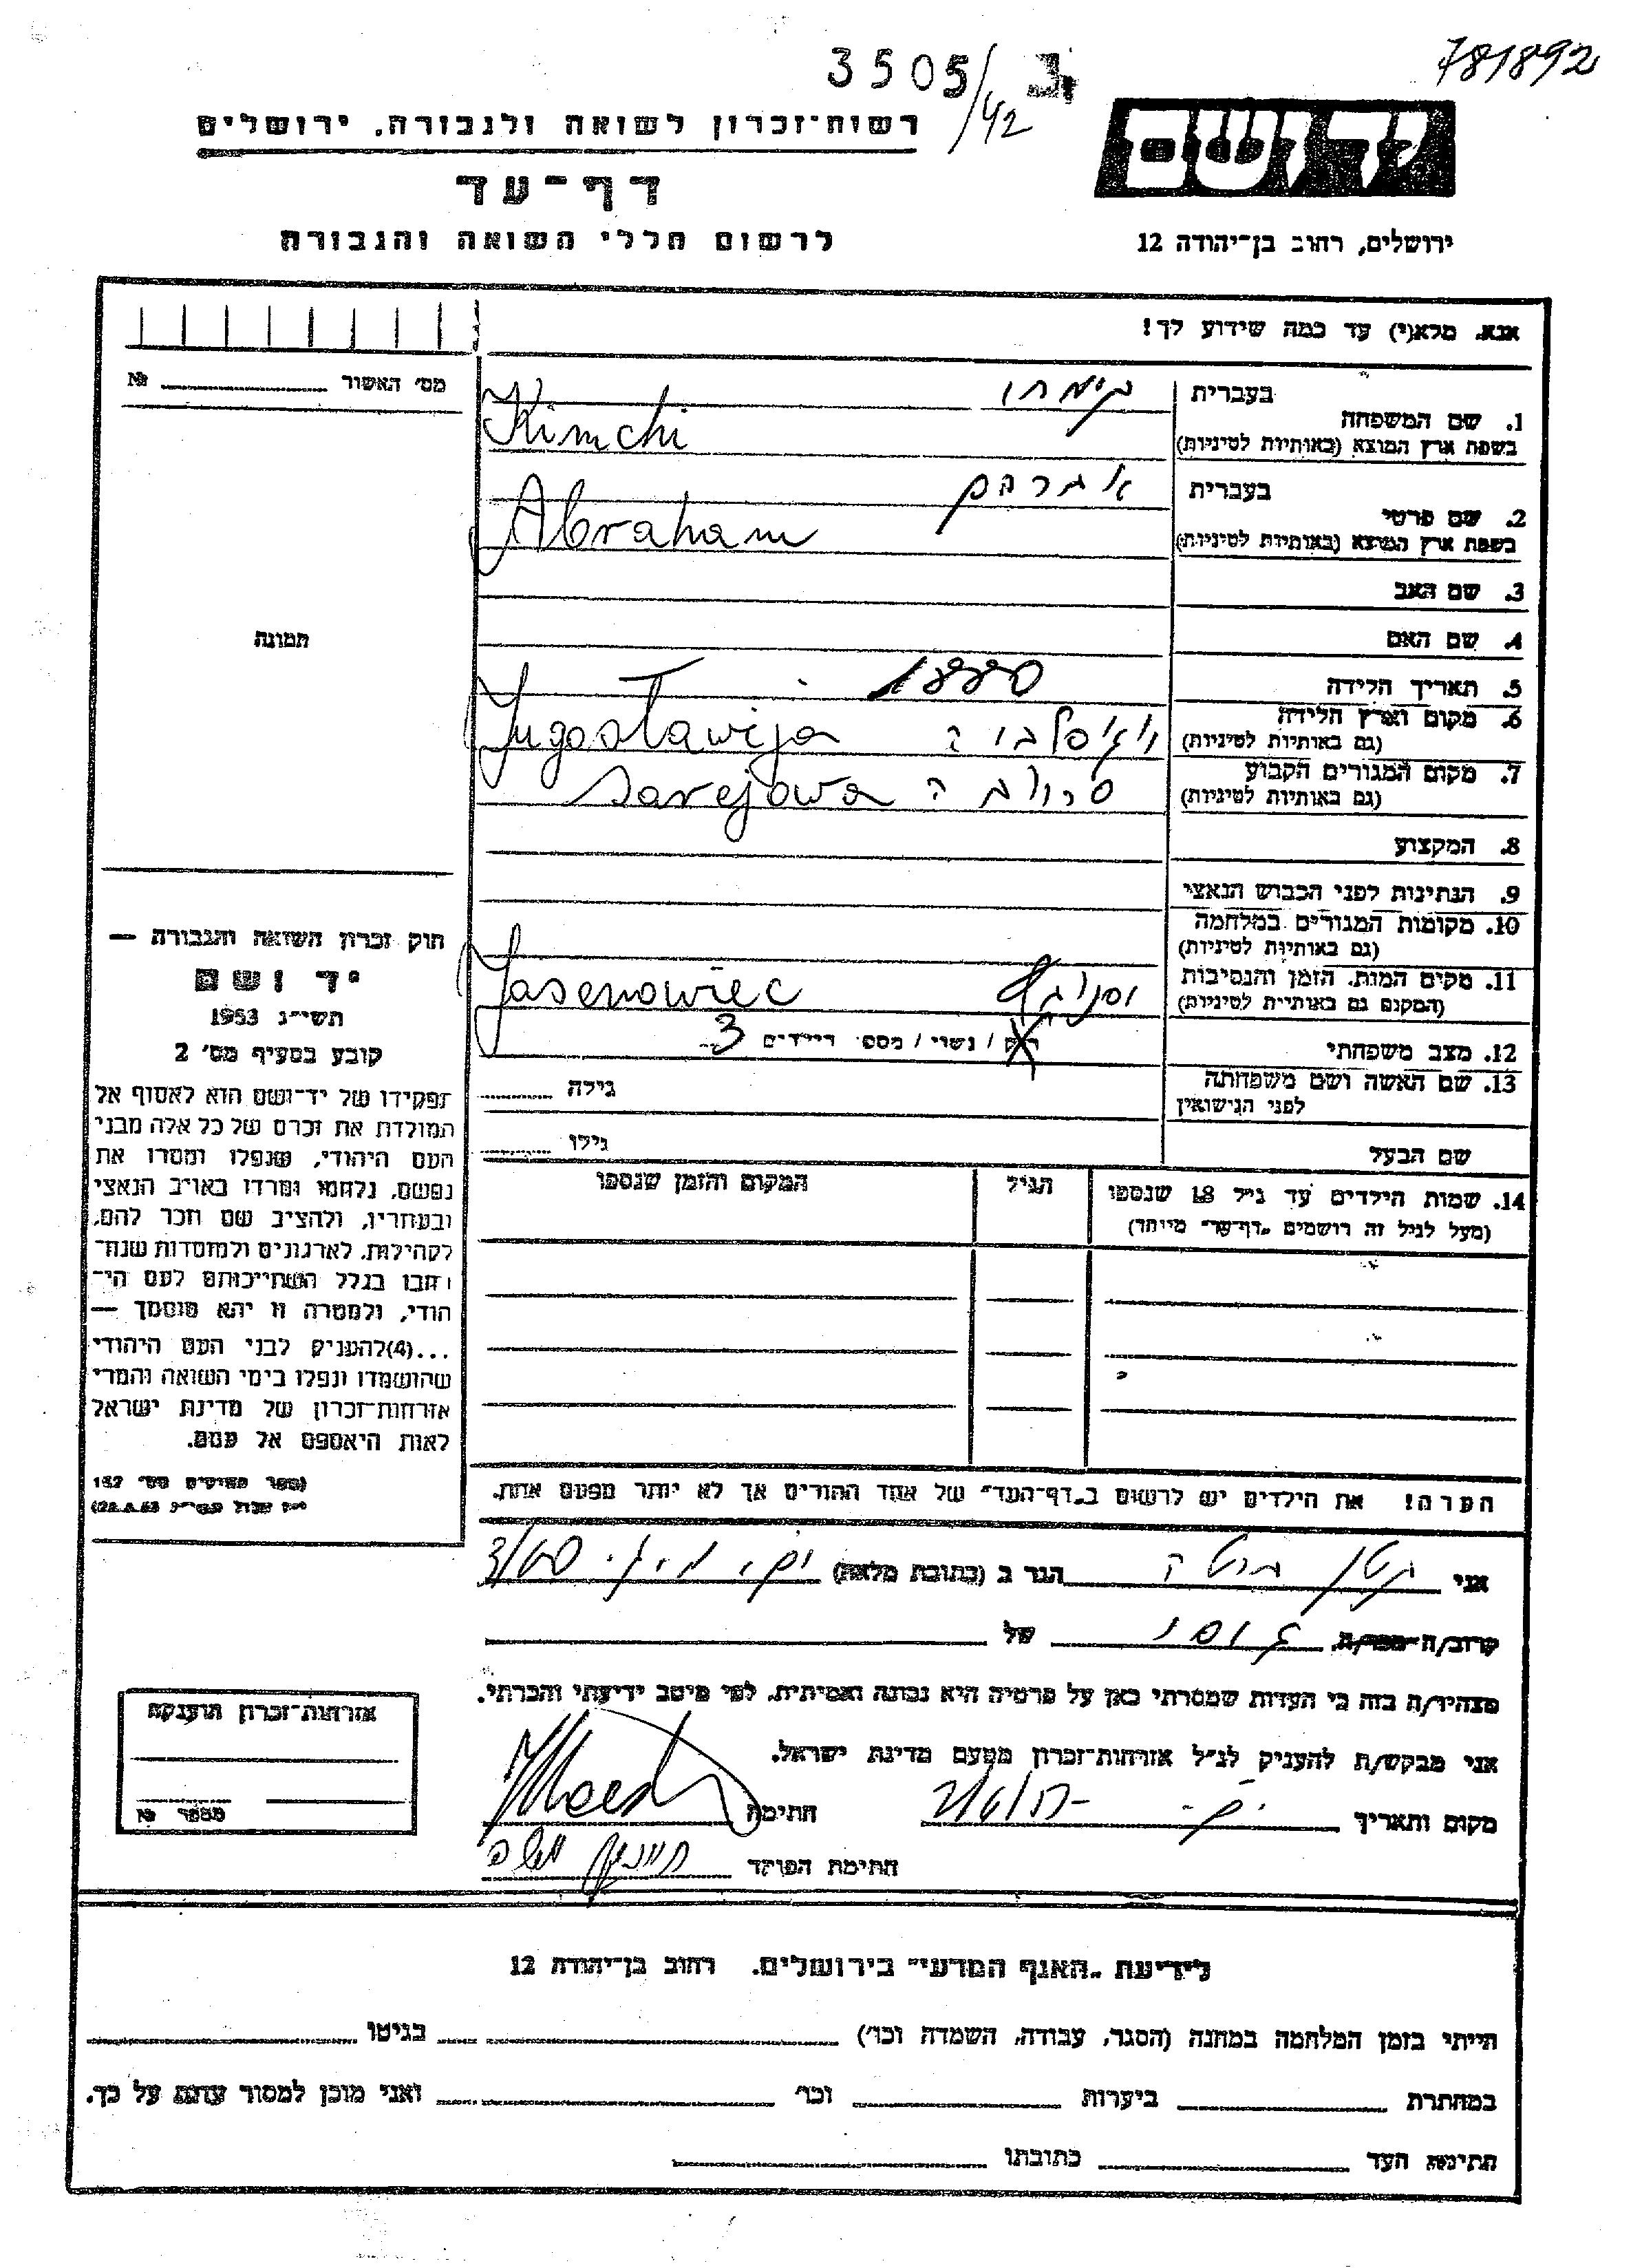 781892
3505/42
יד ושם
רשות־זכרון לשואה ולגבורה. ירושלים
דף־עד
ירושלים, רחוב בן־יהודה 12
לרשום חללי השואה והגבורה
אנא. מלא(י) עד כמה שידוע לך!
מס׳ האשור № 
בעברית
1. שם המשפחה
בשפת ארץ המוצא (באותיות לטיניות)
Kimchi
בעברית אברהם
2. שם פרטי
בשפת ארץ המוצא (באותיות לטיניות)
Abraham
3. שם האב
4. שם האם
תמונה
5. תאריך הלידה 1880
6. מקום וארץ הלידה
(גם באותיות לטיניות)
Jugoslawija
7. מקום המגורים הקבוע
(גם באותיות לטיניות)
Sarejawa
8. המקצוע
9. הנתינות לפני הכבוש הנאצי
10. מקומות המגורים במלחמה
(גם באותיות לטיניות)
11. מקום המות. הזמן והנסיבות
(המקום גם באותיות לטיניות)
Jasenowiec
12. מצב משפחתי / נשוי / מספר ילדים 3
13. שם האשה ושם משפחתה
לפני הנישואין
גילה
שם הבעל גילו
14. שמות הילדים עד גיל 18 שנספו
(מעל לגיל זה רושמים „דף־עד״ מיוחד)
הגיל
המקום והזמן שנספו
חוק זכרון השואה והגבורה —
יד ושם
תשי״ג 1953
קובע בסעיף מס׳ 2
תפקידו של יד־ושם הוא לאסוף אל
המולדת את זכרם של כל אלה מבני
העם היהודי, שנפלו ומסרו את
נפשם, נלחמו ומרדו באויב הנאצי
ובעוזריו, ולהציב שם וזכר להם,
לקהילות, לארגונים ולמוסדות שנח־
רבו בגלל השתייכותם לעם הי־
הודי, ולמטרה זו יהא מוסמך —
...(4)להעניק לבני העם היהודי
שהושמדו ונפלו בימי השואה והמרי
אזרחות־זכרון של מדינת ישראל
לאות היאספם אל עמם.
(ספר החוקים מס׳ 132
הערה! את הילדים יש לרשום ב„דף־העד״ של אחד ההורים אך לא יותר מפעם אחת.
אני הגר ב (כתובת מלאה)
קרוב/ה מכר/ה של
מצהיר/ה בזה כי העדות שמסרתי כאן על פרטיה היא נכונה ואמיתית, לפי מיטב ידיעתי והכרתי.
אני מבקש/ת להעניק לנ״ל אזרחות־זכרון מטעם מדינת ישראל.
מקום ותאריך חתימה
חתימת הפוקד
אזרחות־זכרון הוענקה
מספר №
לידיעת „האגף המדעי״ בירושלים. רחוב בן־יהודה 12
הייתי בזמן המלחמה במחנה (הסגר, עבודה, השמדה וכו׳) בגיטו
במחתרת ביערות וכו׳ ואני מוכן למסור עדות על כך.
חתימת העד כתובתו